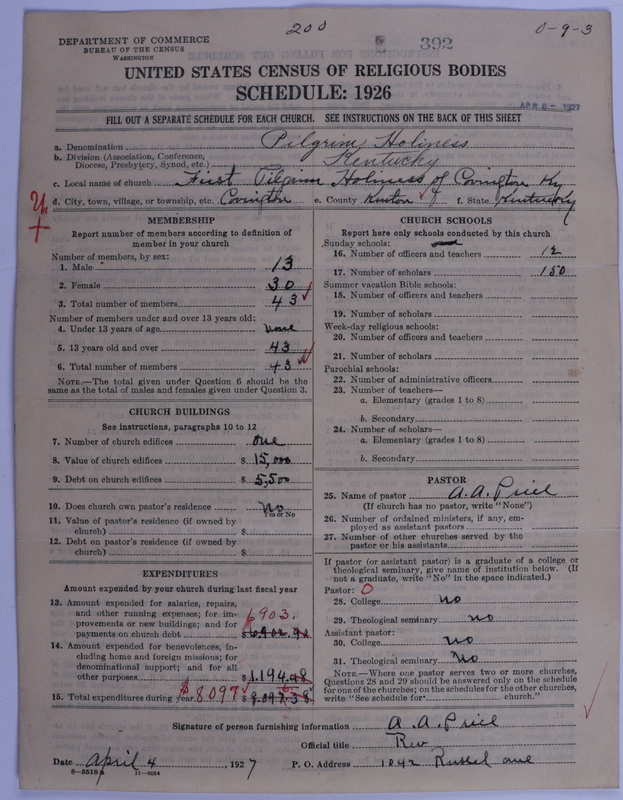 200
392
0-9-3
DEPARTMENT OF COMMERCE
BUREAU OF THE CENSUS
WASHINGTON
UNITED STATES CENSUS OF RELIGIOUS BODIES
SCHEDULE: 1926
APR 6 - 1927
FILL OUT A SEPARATE SCHEDULE FOR EACH CHURCH. SEE INSTRUCTIONS ON THE BACK OF THIS SHEET
a. Denomination Pilgrim Holiness
b. Division (Association, Conference, Diocese, Presbytery, Synod, etc.) Kentucky
c. Local name of church First Pilgrim Holiness of Covington Ky
d. City, town, village, or township, etc. Covington e. County Kenton f. State Kentucky
MEMBERSHIP
Report number of members according to definition of
member in your church
Number of members, by sex:
1. Male 13
2. Female 30
3. Total number of members 43
Number of members under and over 13 years old:
4. Under 13 years of age none
5. 13 years old and over 43
6. Total number of members 43
NOTE.—The total given under Question 6 should be the
same as the total of males and females given under Question 3.
CHURCH BUILDINGS
See instructions, paragraphs 10 to 12
7. Number of church edifices one
8. Value of church edifices $ 15,000
9. Debt on church edifices $ 5,500
10. Does church own pastor's residence No
Yes or No
11. Value of pastor's residence (if owned by
church) $
12. Debt on pastor's residence (if owned by
church) $
EXPENDITURES
Amount expended by your church during last fiscal year
13. Amount expended for salaries, repairs,
and other running expenses; for im-
provements or new buildings; and for
payments on church debt 6903. $ 6902.90
14. Amount expended for benevolences, in-
cluding home and foreign missions; for
denominational support; and for all
other purposes $ 1,194.48
15. Total expenditures during year $8097 $ 8,097.38
CHURCH SCHOOLS
Report here only schools conducted by this church
Sunday schools:
16. Number of officers and teachers 12
17. Number of scholars 150
Summer vacation Bible schools:
18. Number of officers and teachers
19. Number of scholars
Week-day religious schools:
20. Number of officers and teachers
21. Number of scholars
Parochial schools:
22. Number of administrative officers
23. Number of teachers—
a. Elementary (grades 1 to 8)
b. Secondary
24. Number of scholars—
a. Elementary (grades 1 to 8)
b. Secondary
PASTOR
25. Name of pastor A. A. Price
(If church has no pastor, write "None")
26. Number of ordained ministers, if any, em-
ployed as assistant pastors
27. Number of other churches served by the
pastor or his assistants
If pastor (or assistant pastor) is a graduate of a college or
theological seminary, give name of institution below. (If
not a graduate, write "No" in the space indicated.)
Pastor: 0
28. College no
29. Theological seminary no
Assistant pastor:
30. College no
31. Theological seminary No
NOTE.—Where one pastor serves two or more churches,
Questions 28 and 29 should be answered only on the schedule
for one of the churches; on the schedules for the other churches,
write "See schedule for church."
Signature of person furnishing information A. A. Price
Official title Rev
Date April 4, 1927 P. O. Address 1042 Russel ave
8-5518a 11-9084